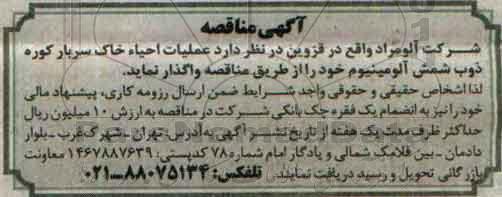 آگهی مناقصه
شرکت آلومراد واقع در قزوین در نظر دارد عملیات احیاء خاک سرباره کوره
ذوب شمش آلومینیوم خود را از طریق مناقصه واگذار نماید.
لذا اشخاص حقیقی و حقوقی واجد شرایط ضمن ارسال رزومه کاری، پیشنهاد مالی
خود را نیز به انضمام یک فقره چک بانکی شرکت در مناقصه به ارزش ۱۰ میلیون ریال
حداکثر ظرف مدت یک هفته از تاریخ نشر آگهی به آدرس: تهران - شهرک غرب - بلوار
دادمان - بین فلامک شمالی و یادگار امام شماره ۷۸ کدپستی: ۱۴۶۷۸۸۷۶۳۹ معاونت
بازرگانی تحویل و رسید دریافت نمایند. تلفکس: ۸۸۰۷۵۱۳۴-۰۲۱